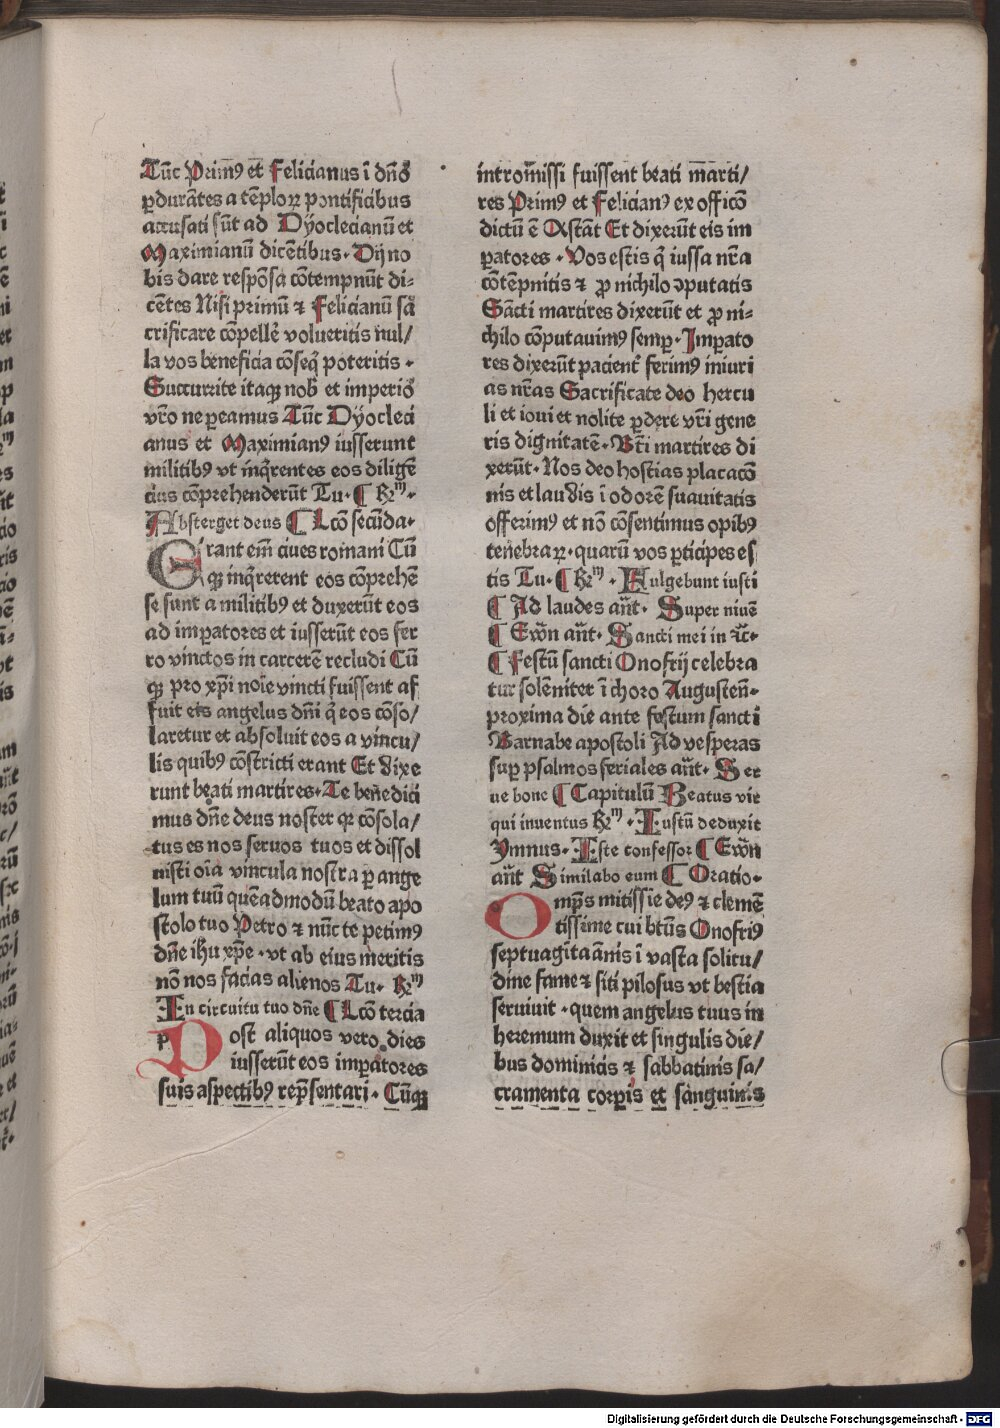 Tūc Primꝰ et Felicianus ī dn̄o
ꝑdurātes a tēploꝝ pontificibus
accusati sūt ad Dyoclecianū et
Maximianū dicētibus· Dij no
bis dare respōsa cōtempnūt di⸗
cētes Nisi primū ⁊ Felicianū sā
crificare cōpellē volueritis nul/
la vos beneficia cōseq̄ poteritis·
Succurrite itaqꝫ nob̄ et imperio
vr̄o ne ꝑeamus Tūc Dyocleci
anus et Maximianꝰ iusserunt
militibꝰ vt inq̄rentes eos diligē
cius cōprehenderūt Tu· ¶ R̄m·
Absterget deus ¶ Lcō secūda·
Erant em̄ ciues romani Cū
qꝫ inq̄rerent eos cōprehē
se sunt a militibꝰ et duxerūt eos
ad imꝑatores et iusserūt eos fer
ro vinctos in carcerē recludi Cū
qꝫ pro xp̄i noīe vincti fuissent af
fuit eis angelus dn̄i q̄ eos cōso/
laretur et absoluit eos a vincu/
lis quibꝰ cōstricti erant Et dixe
runt beati martires· Te benedici
mus dn̄e deus noster qꝛ cōsola/
tus es nos seruos tuos et dissol
uisti oīa vincula nostra ꝑ ange
lum tuū quēadmodū beato apo
stolo tuo Petro ⁊ nūc te petimꝰ
dn̄e ihu xp̄e· vt ab eius meritis
nō nos facias alienos Tu· R̄m
In circuitu tuo dn̄e ¶ Lcō tercia
Post aliquos vero dies
iusserūt eos imꝑatores
suis aspectibꝰ rep̄sentari· Cūqꝫ
intromissi fuissent beati marti/
res Primꝰ et Felicianꝰ ex officō
dictū ē Astāt Et dixerūt eis im
ꝑatores· Vos estis q̄ iussa nr̄a
cōtēpnitis ⁊ ꝓ nichilo ꝯputatis
Sācti martires dixerūt et ꝓ ni⸗
chilo cōputauimꝰ semꝑ· Imꝑato
res dixerūt pacient᷑ ferimꝰ iniuri
as nr̄as Sacrificate deo hercu
li et ioui et nolite ꝑdere vr̄i gene
ris dignitatē· Bt̄i martires di
xerūt· Nos deo hostias placacō
nis et laudis ī odorē suauitatis
offerimꝰ et nō cōsentimus opibꝰ
tenebraꝝ· quarū vos ꝑticipes es
tis Tu· ¶ R̄m· Fulgebunt iusti
¶ Ad laudes an̄t· Super niuē
¶ Ewn̄ an̄t· Sancti mei in ⁊c̄·
¶ Festū sancti Onofrij celebra
tur solēniter ī choro Augusteñ⸗
proxima die ante festum sancti
Barnabe apostoli Ad vesperas
suꝑ psalmos feriales an̄t· Ser
ue bone ¶ Capitulū Beatus vir
qui inuentus R̄m· Iustū deduxit
Ymnus· Iste confessor ¶ Ewn̄
an̄t Similabo eum ¶ Oratio·
Omp̄s mitissie deꝰ ⁊ clemē
tissime cui bt̄us Onofriꝰ
septuagīta ānis ī vasta solitu/
dine fame ⁊ siti pilosus vt bestia
seruiuit· quem angelus tuus in
heremum duxit et singulis die/
bus dominicis ⁊ sabbatinis sa/
cramenta corꝑis et sanguinis
Digitalisierung gefördert durch die Deutsche Forschungsgemeinschaft - DFG